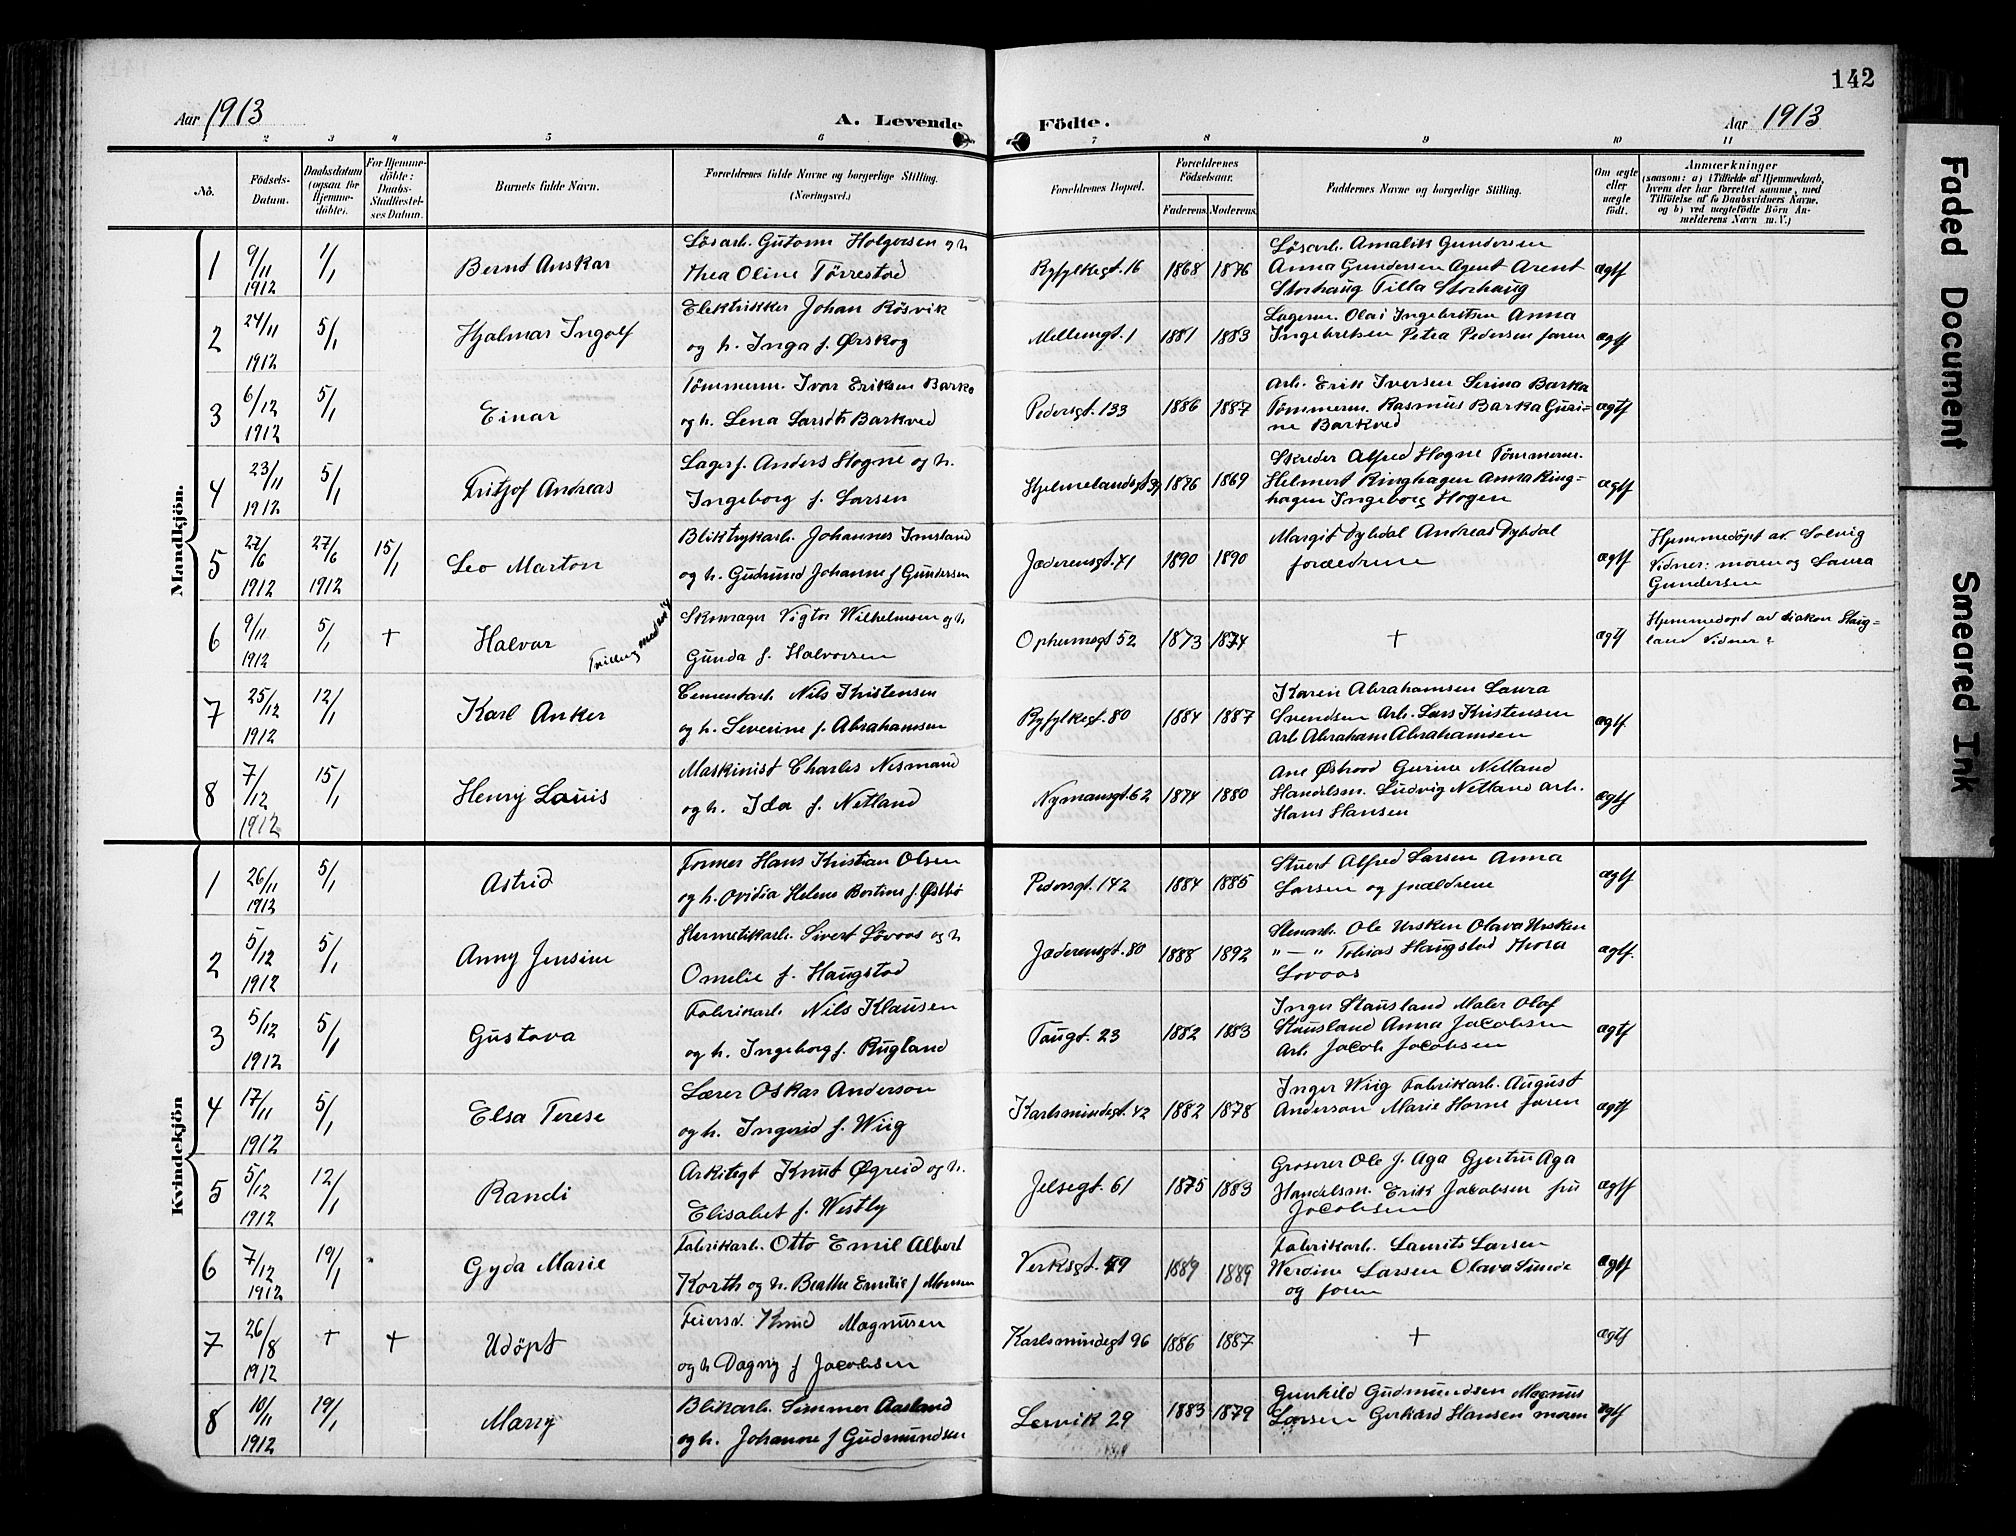 142
Aar 1913
A. Levende Födte.
Aar 1913
1 2 3 4 5 6 7 8 9 10 11
No. Födsels-Datum. Daabsdatum (ogsaa for Hjemmedöbte). For Hjemmedöbte: Daabs-Stadfæstelses Datum. Barnets fulde Navn. Forældrenes fulde Navne og borgerlige Stilling. (Næringsvei.) Forældrenes Bopæl. Forældrenes Födselsaar. Faderens. Moderens. Faddernes Navne og borgerlige Stilling. Om ægte eller uægte födt. Anmærkninger
(saasom: a) i Tilfælde af Hjemmedaab, hvem der har forrettet samme, med Tilföielse af to Daabsvidners Navne. og b) ved uægtefödte Börn Anmelderens Navn m. V.)
Mandkjön.
1 9/11 1912 1/1 Bernt Anskar Lösarb. Gutorm Holgersen og h Thea Oline Törrestad Ryfylkegt. 16 1868 1876 Lösarb. Amalik Gundersen
Anna Gundersen Agent Arent
Storhaug Tilla Storhaug ægtf
2 24/11 1912 5/1 Hjalmar Ingolf Elektrikker Johan Rösvik
og h. Inga f. Ørskog Mellemgt. 1 1881 1883 Lagerm. Olai Ingebretsen Anna
Ingebretsen Petra Pedersen faren ægtf
3 6/12 1912 5/1 Einar Tömmerm. Ivar Eriksen Barka
og h. Lena Larsdt Barkved Pedersgt. 133 1886 1887 Arb. Erik Iversen Serina Barka
Tömmerm. Rasmus Barka Guri-
ne Barkved ægtf
4 23/11 1912 5/1 Fritjof Andreas Lagerf. Anders Hogne og h.
Ingeborg f. Larsen Hjelmelandsgt 1876 1869 Skreder Alfred Hogne Tömmerm.
Helmert Ringhagen Anna Ring-
hagen Ingeborg Hogen ægtf
5 27/6 1912 27/6 1912 15/1 Leo Marton Bliktrykarb. Johannes Imsland
og h. Gudrund Johanne f Gundersen Jæderensgt. 41 1890 1890 Margit Dybdal Andreas Dybdal
forældrene ægtf Hjemmedöpt av Solvig
Vidner: moren og Laura
Gundersen
6 9/11 1912 5/1 + Halvar Tvilling med Skomager Vigtor Wilhelmsen og h
Gunda f. Halvorsen Ophemsgt 52 1873 1874 + ægtf Hjemmedöpt av diakon Staig-
land Vidner?
7 25/12 1912 12/1 Karl Anker Cementarb. Nils Kristensen
og h. Severine f. Abrahamsen Ryfylkegt. 80 1884 1887 Karen Abrahamsen Laura
Svendsen Arb. Lars Kristensen
Arb Abraham Abrahamsen ægtf
8 7/12 1912 15/1 Henry Louis Maskinist Charles Nesmand
og h. Ida f. Netland Nymansgt. 62 1874 1880 Ane Østrood Gurine Netland
Handelsm. Ludvig Netland arb.
Hans Hansen ægtf
Kvindekjön
1 26/11 1912 5/1 Astrid Former Hans Kristian Olsen
og h. Ovidia Helene Bertine f. Østbö Pedersgt. 142 1884 1885 Stuert Alfred Larsen Anna
Larsen og forældrene ægtf
2 5/12 1912 5/1 Anny Jensine Hermetikarb. Sivert Lovaas og h
Omelie f. Haugstad Jæderensgt. 80 1888 1892 Stenarb. Ole Ursken Olava Ursken
" — " Tobias Haugstad Thora
Lovaas ægtf.
3 5/12 1912 5/1 Gustava Fabrikarb. Nils Klausen
og h. Ingeborg f. Rugland Taugt. 23 1882 1883 Inger Stausland Maler Olaf
Stausland Anna Jacobsen
Arb. Jacob Jacobsen ægtf
4 17/11 1912 5/1 Elsa Terese Lærer Oskar Anderson
og h. Ingerid f. Wiig Karlsmindegt. 42 1882 1878 Inger Wiig Fabrikarb. August
Anderson Marie Horne faren ægtf
5 5/12 1912 12/1 Randi Arkitegt Knut Øgreid og h.
Elisabet f. Westly Jelsegt. 61 1875 1883 Groserer Ole J. Aga Gjertru Aga
Handelsm. Erik Jacobsen fru
Jacobsen ægtf
6 7/12 1912 19/1 Gyda Marie Fabrikarb. Otto Emil Albert
Korth og h. Beathe Emilie f Monsen Verksgt. 49 1889 1889 Fabrikarb. Laurits Larsen
Werdine Larsen Olava Sunde
og faren ægtf
7 26/8 1912 + + Udöpt Feiersv. Knud Magnusen
og h Dagny f Jacobsen Karlsmindegt 96 1886 1887 + ægtf
8 10/11 1912 19/1 Marry Blikarb. Simmer Aasland
og h. Johanne f Gudmundsen Lervik 29 1883 1879 Gunhild Gudmundsen Magnus
Larsen Gerhard Hansen moren ægtf
Faded Document
Smeared Ink